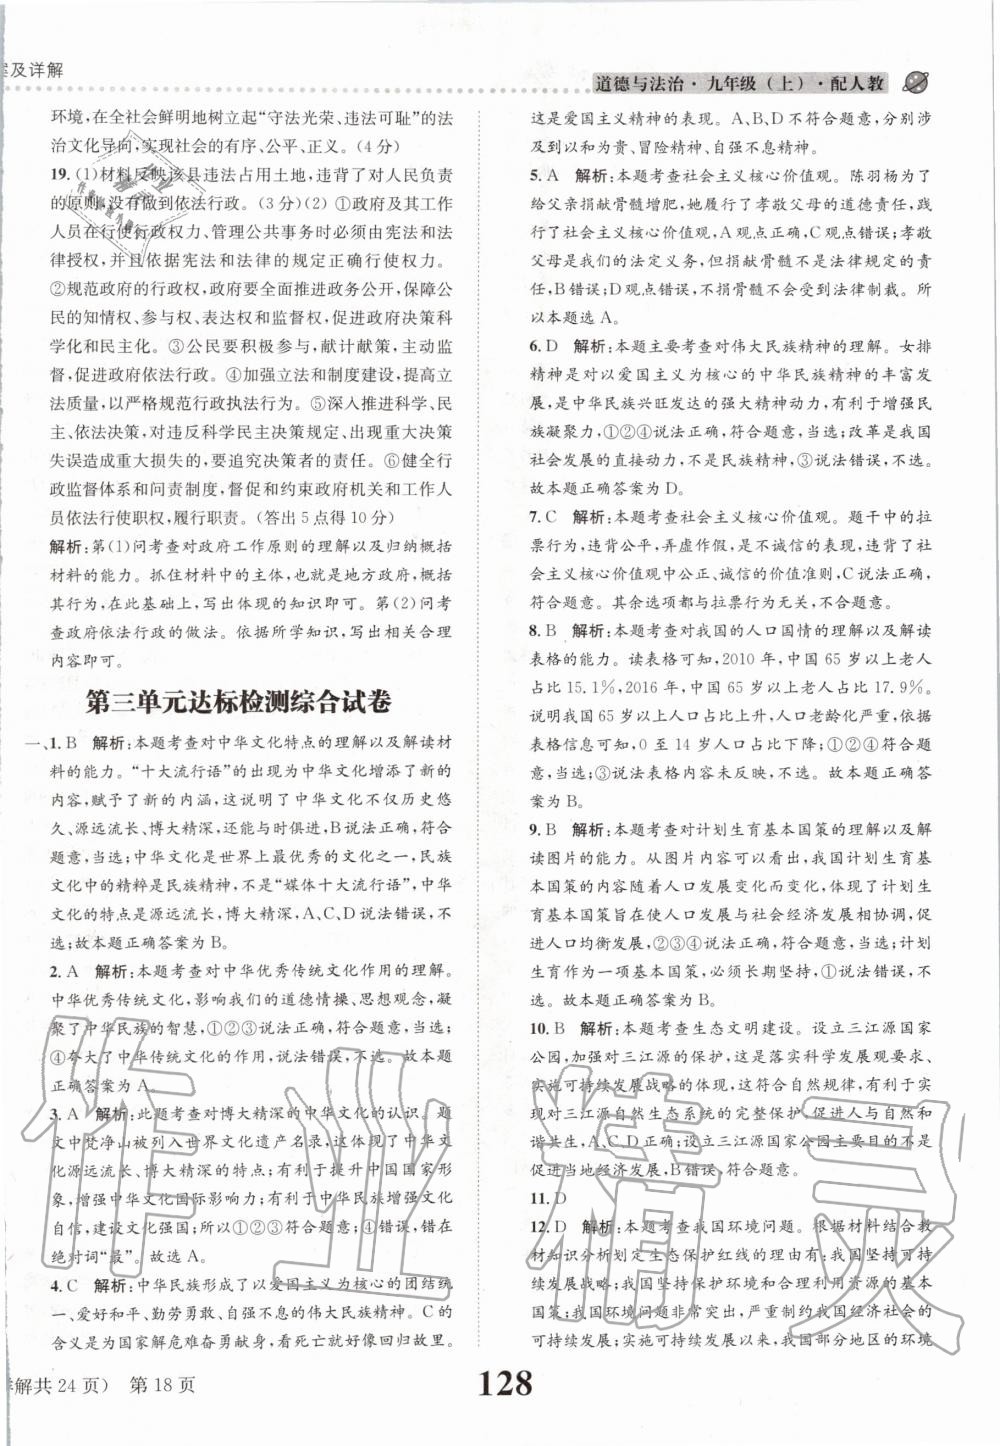 案及详解
道德与法治·九年级（上）·配人教
环境,在全社会鲜明地树立起“守法光荣、违法可耻”的法
治文化导向,实现社会的有序、公平、正义。(4分)
19. (1)材料反映该县违法占用土地,违背了对人民负责
的原则,没有做到依法行政。(3分)(2) ①政府及其工作
人员在行使行政权力、管理公共事务时必须由宪法和法
律授权,并且依据宪法和法律的规定正确行使权力。
②规范政府的行政权,政府要全面推进政务公开,保障公
民的知情权、参与权、表达权和监督权,促进政府决策科
学化和民主化。③公民要积极参与,献计献策,主动监
督,促进政府依法行政。④加强立法和制度建设,提高立
法质量,以严格规范行政执法行为。⑤深入推进科学、民
主、依法决策,对违反科学民主决策规定、出现重大决策
失误造成重大损失的,要追究决策者的责任。⑥健全行
政监督体系和问责制度,督促和约束政府机关和工作人
员依法行使职权,履行职责。(答出5点得10分)
解析:第(1)问考查对政府工作原则的理解以及归纳概括
材料的能力。抓住材料中的主体,也就是政府,进行概括
后,在此基础上,写出体现的知识即可。第(2)问考
查政府依法行政的做法。依据所学知识,写出相关合理
内容即可。
第三单元达标检测综合试卷
一、1. B 解析:本题考查对中华文化特点的理解以及解读材
料的能力。“十大流行语”的出现为中华文化增添了新的
内容,赋予了新的内涵,这说明了中华文化不仅历史悠
久、源远流长、博大精深,还能与时俱进,B说法正确,符合
题意,当选;中华文化是世界上最优秀的文化之一,民族
文化中的精粹是民族精神,不是“媒体十大流行语”,中华
文化的特点是源远流长,博大精深,A、C、D说法错误,不
选;故本题正确答案为 B。
2. A 解析:本题考查对中华优秀传统文化作用的理解。
中华优秀传统文化,影响我们的道德情操、思想观念,凝
聚了中华民族的智慧,①②③说法正确,符合题意,当选;
④夸大了中华传统文化的作用,说法错误,不选。故本题
正确答案为 A。
3. A 解析:此题考查对博大精深的中华文化的认识。题
文中梵净山被列入世界文化遗产名录,这体现了中华文
化源远流长、博大精深;有利于提升中华民族国家形
象,增强中华文化国际影响力;有利于中华民族增强文化
自信,建设文化强国;所以①②③符合题意;④错误,错在
绝对词“最”。故选 A。
4. C 解析:中华民族形成了以爱国主义为核心的团结统
一、爱好和平、勤劳勇敢、自强不息的伟大民族精神。C 的
含义是为国家解危难奋勇献身,看死亡就好像回归故里。
这是爱国主义精神的表现。A、B、D 不符合题意,分别涉
及到以和为贵、冒险精神、自强不息精神。
5. A 解析:本题考查社会主义核心价值观。陈羽杨为了
给父亲捐骨髓增肥,她履行了孝敬父母的道德责任,践行
了社会主义核心价值观,A 观点正确,C 观点错误;孝敬
父母是我们的法定义务,但捐献骨髓不是法律规定的责
任,B错误;D 观点错误,不捐骨髓不会受到法律制裁。所
以本题选 A。
6. D 解析:本题主要考查对伟大民族精神的理解。女排
精神是对以爱国主义为核心的中华民族精神的丰富发
展,是中华民族兴旺发达的强大精神动力,有利于增强民
族凝聚力,①②④说法正确,符合题意,当选;改革是我国
社会发展的直接动力,不是民族精神,③说法错误,不选。
故本题正确答案为 D。
7. C 解析:本题考查社会主义核心价值观。题干中的拉
票行为,违背公平,弄虚作假,是不诚信的表现,违背了社
会主义核心价值观中公正、诚信的价值准则,C说法正确,
符合题意。其余选项都与拉票行为无关,不合题意。
8. B 解析:本题考查对我国的人口国情的理解以及解读
表格的能力。读表格可知,2010 年,中国 65 岁以上老人
占比 15.1%,2016 年,中国 65 岁以上老人占比 17.9%。
说明我国 65 岁以上人口占比上升,人口老龄化严重,依
表格信息可知,0 至 14 岁人口占比下降;①②④符合题
意,当选;③说法表格内容未反映,不选。故本题正确答
案为 B。
9. B 解析:本题考查对计划生育基本国策的理解以及解
读图片的能力。从图片内容可以看出,我国计划生育基
本国策的内容随着人口发展变化而变化,体现了计划生
育基本国策旨在使人口发展与社会经济发展相适应,促
进人口均衡发展,②③④说法正确,符合题意,当选;计划
生育作为一项基本国策,必须长期坚持,①说法错误,不
选。故本题正确答案为 B。
10. B 解析:本题考查生态文明建设。设立三江源国家
公园,加强对三江源的保护,这是落实科学发展观要求、
实施可持续发展战略的体现,这符合自然规律,有利于
对三江源自然生态系统的完整保护,促进人与自然和
谐共生,A、C、D正确;设立三江源国家公园主要目的不是
促进当地经济发展,B错误,符合题意。
11. D
12. D 解析:本题考查我国环境问题。根据材料结合教
材知识分析划定生态保护红线的理由有:我国坚持可持
续发展战略;我国坚持保护环境和合理利用资源的基本
国策;我国环境问题非常突出,严重制约我国经济社会的
可持续发展;实施可持续发展以来,我国部分地区的环境
详解共 24 页） 第 18 页
128
作业精灵